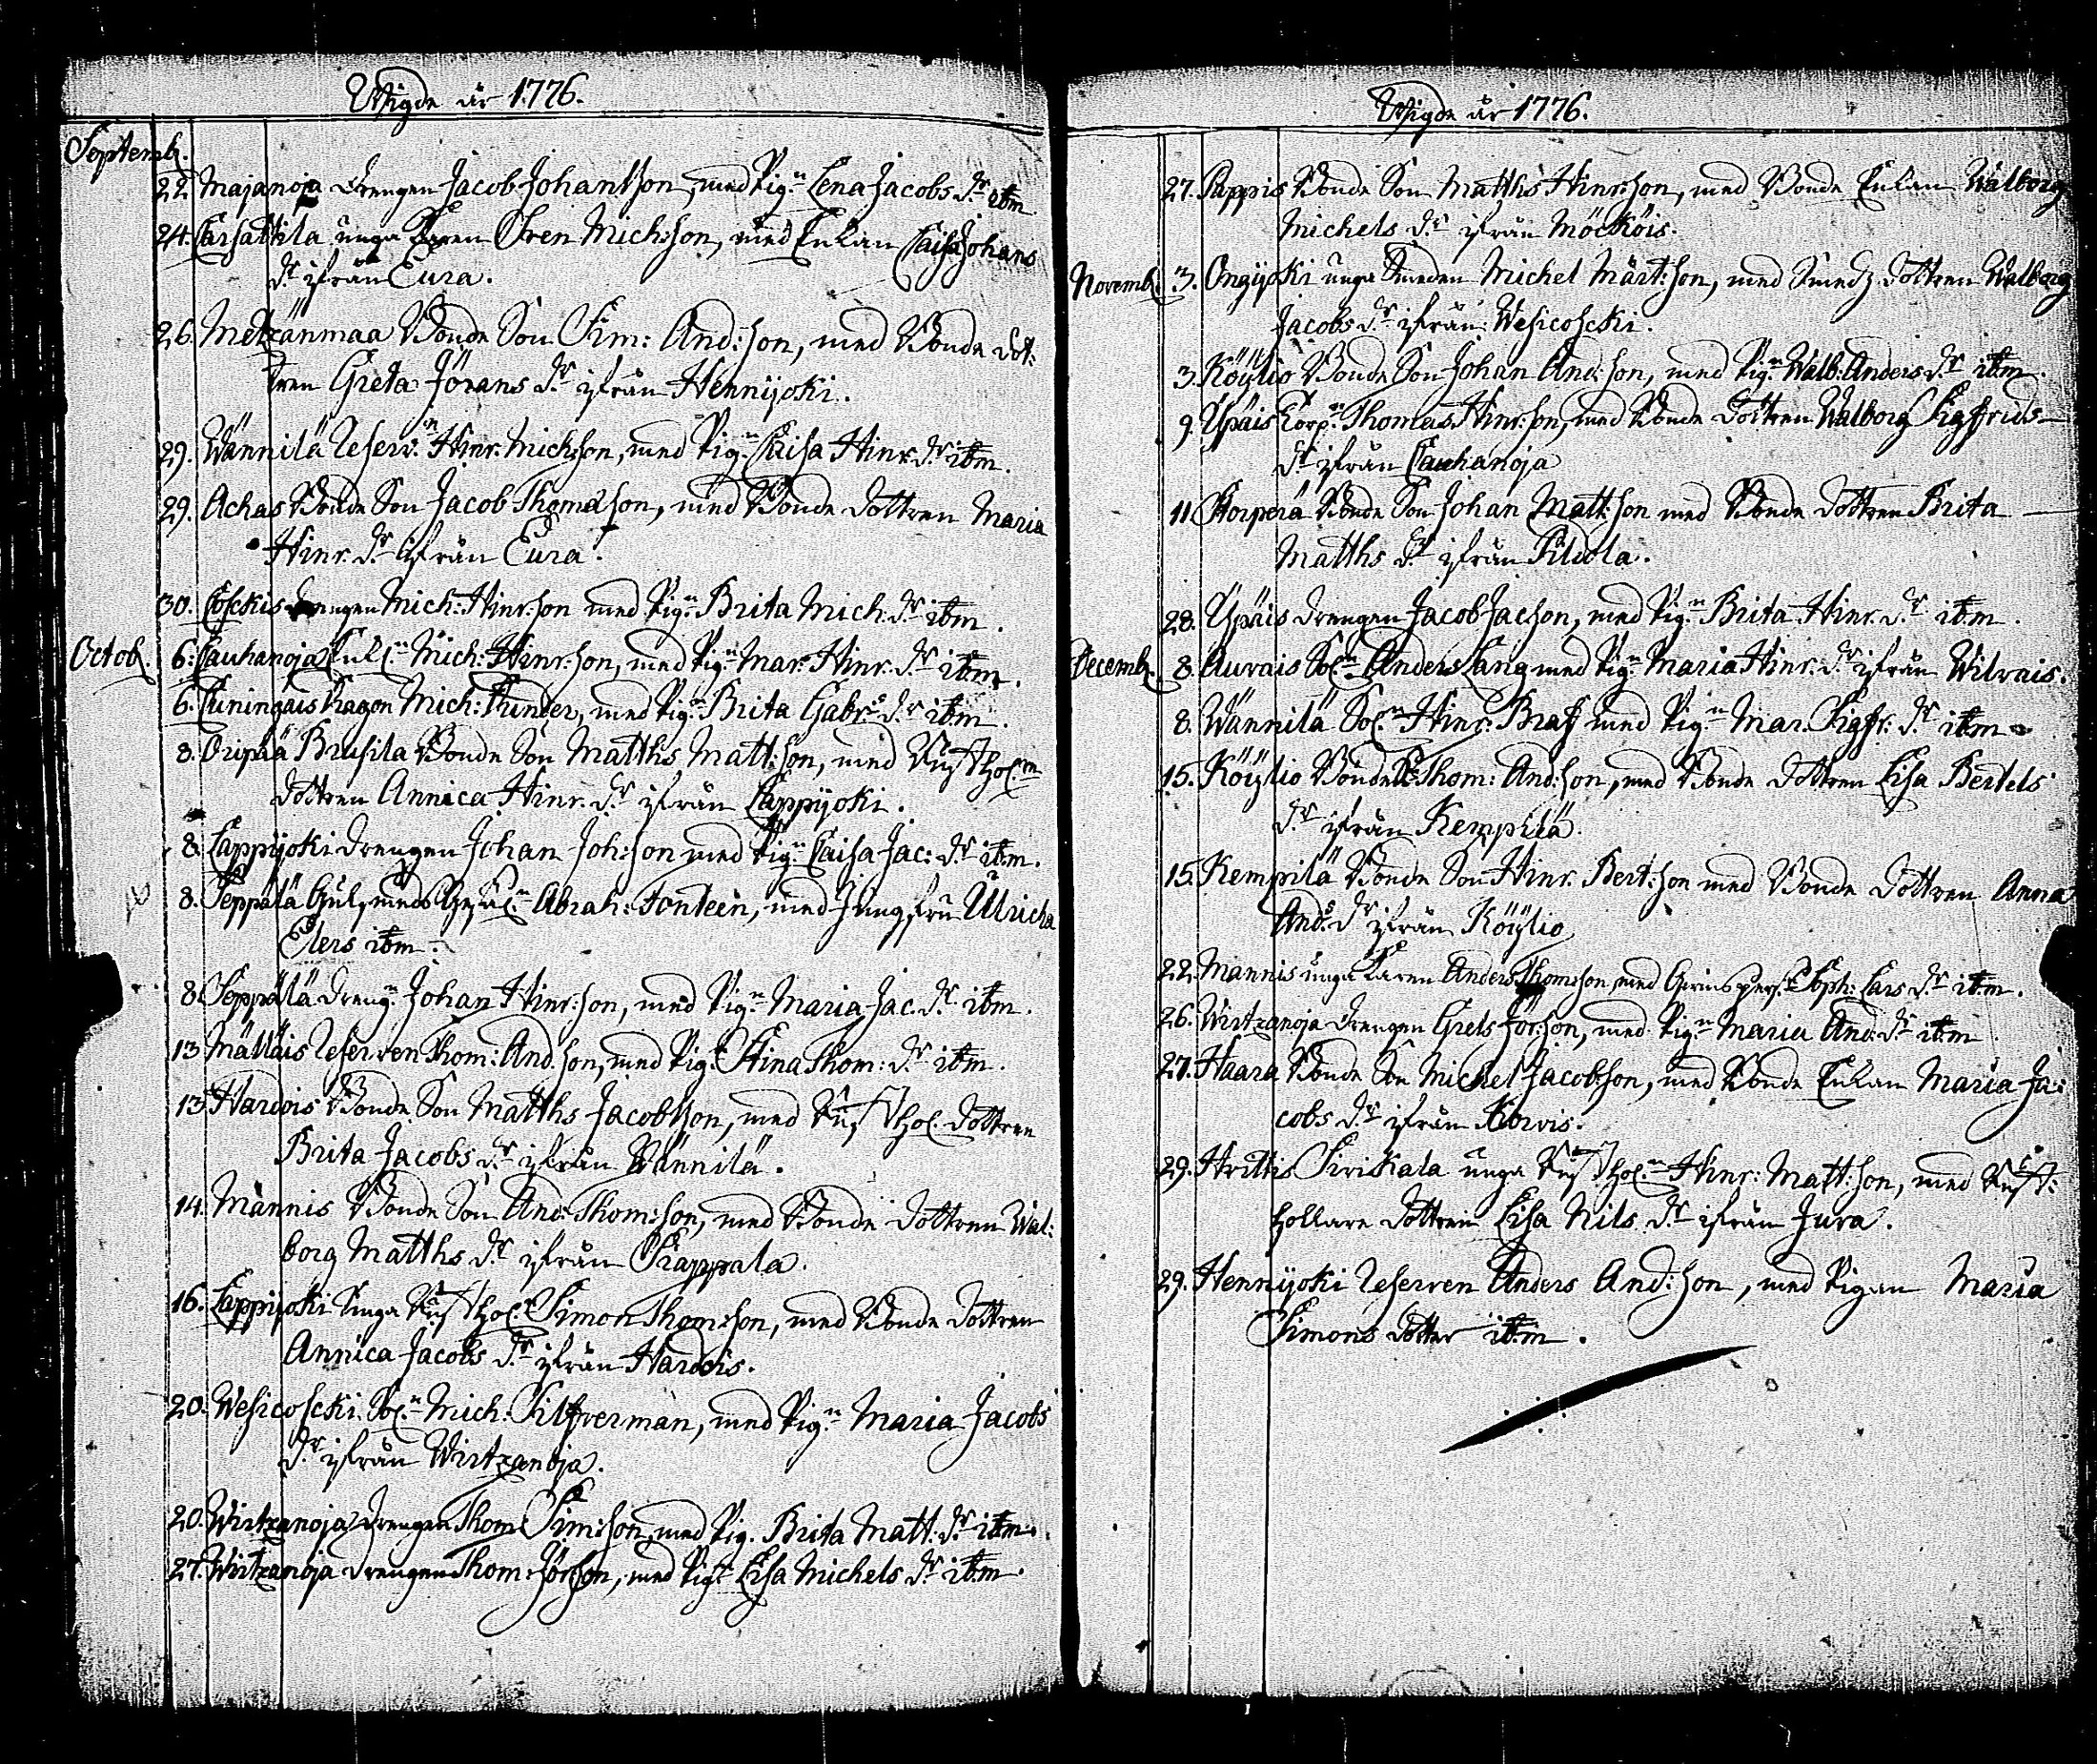 Wigde år 1776.
Septemb.
22. Majanoja Drengen Jacob Johansson, med Pig.n Lena Jacobs d.r itm
24. Carsattila unga Karen Sven Michsson, med Enkan Caisa Johans
d.r ifrån Eura.
26. Metzänmaa Bonde Son Sim: And:son, med Bonde dot:
tren Greta Jörans d.r ifrån Hennijoki.
29. Wännilä Reserv.n Hinr. Michsson, med Pig.n Caisa Hinr. d.r itm.
29. Achas Bonde Son Jacob Thomasson, med Bonde dottren Maria
Hinr. d.r ifrån Eura.
30. Coskis drengen Mich: Hinr:son med Pig.n Brita Mich. d.r itm.
Octob. 6. Cauhanoja Enkl.n Mich: Hinr:son, med Pig.n Mar. Hinr. d.r itm.
6. Cuningais Dragon Mich: Funder, med Pig.n Brita Gabr:s d.r itm.
8. Oripää Brusila Bonde Son Matths Matt:son, med Rusthol.rn
dottren Annica Hinr. d.r ifrån Lappijoki.
8. Lappijoki drengen Johan Joh:son med Pig.n Caisa Jac: d.r itm.
8. Seppälä Gulsmeds Gesäl.n Abrah: Fonteen, med Jungfru Ulricha
Elers itm.
8. Seppälä Dreng.n Johan Hinr:son, med Pig.n Maria Jac. d.r itm.
13 Mälläis Reserven Thom: And:son, med Pig.n Stina Thom: d.r itm.
13. Hardois Bonde Son Matths Jacobsson, med Rusthol. dottren
Brita Jacobs d.r ifrån Wännilä.
14. Männis Bonde Son And: Thom:son, med Bonde dottren Wal:
borg Matths d.r ifrån Trappala.
16. Lappijoki Unga Rusthol.n Simon Thomsson, med Bonde dottren
Annica Jacobs d.r ifrån Hardois.
20. Wesicoscki Sol.n Mich: Silfverman, med Pig.n Maria Jacobs
d.r ifrån Wirtzanoja.
20. Wirtzanoja drengen Thom: Sim:son, med Pig. Brita Matt. d.r itm.
27. Wirtzanoja drengen Thom: Jör:son, med Pig.n Lisa Michels d.r itm.
Wigde år 1776.
27. Pappis Bonde Son Matths Hinr:son, med Bonde Enkan Walborg
Michels d.r ifrån Möcköis.
Novemb. 3. Ongijoki unga Smeden Michel Märt:son, med Smedz dottren Walborg
Jacobs d.r ifrån Wesicoscki.
3. Köÿlio Bonde Son Johan And:son, med Pig.n Walb: Anders d.r itm.
9. Ÿpäis Torp.n Thomas Hinr:son, med Bonde dottren Walborg Sigfrids
d.r ifrån Cauhanoja
11. Korpera Bonde Son Johan Matt:son med Bonde dottren Brita
Matths d.r ifrån Pildola.
28. Ÿpäis drengen Jacob Jacson, med Pig.n Brita Hinr. d.r itm.
Decemb. 8. Auvais Sol.n Anders Lang med Pig.n Maria Hinr. d.r ifrån Wilvais.
8. Wännilä Sol.n Hinr: Braf med Pig.n Mar. Sigfr. d.r itm.
15. Köÿlio Bonde Thom: And:son, med Bonde dottren Lisa Bertels
d.r ifrån Kempilä.
15. Kempilä Bonde Son Hinr. Bert:son med Bonde dottren Anna
And:s d.r ifrån Köÿlio
22. Mannis unga Karen Anders Thomsson, med Soph: Lars d.r itm.
26. Wirtzanoja drengen Grels Jör:son, med Pig.n Maria And: d.r itm.
27. Haara Bonde Son Michel Jacobsson, med Bonde Enkan Maria Ja:
cobs d.r ifrån Korvis.
29. Hrittis Sirikala unga Rusthol.n Hinr: Matt:son, med Rust:
hollare dottren Lisa Nils d.r ifrån Jura.
29. Hennijoki Reserven Anders And:son, med Pigan Maria
Simons dotter itm.